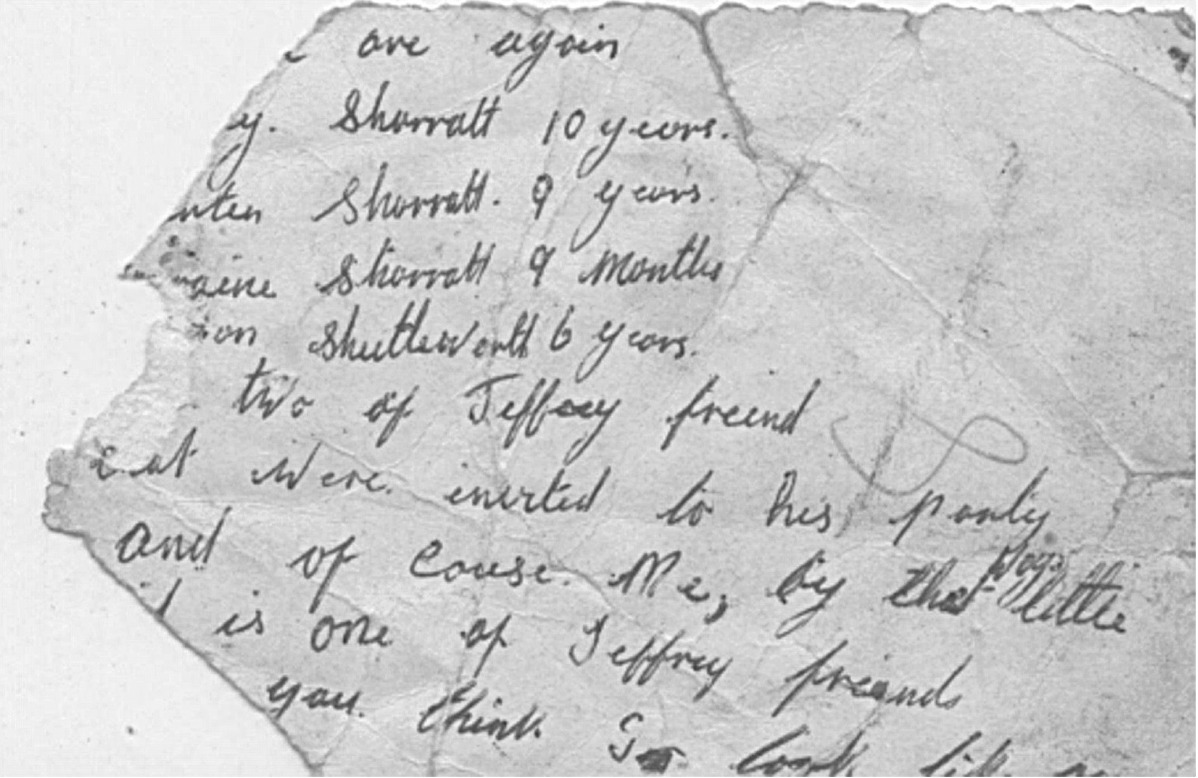 are again
y. Sharratt 10 years.
nten Sharratt. 9 years.
aine Sharratt 9 Months
on Shuttleworth 6 years.
two of Jeffrey freend
at were. envited to his party
and of couse. Me, by the way little
is one of Jeffrey freends
you. think. I look like